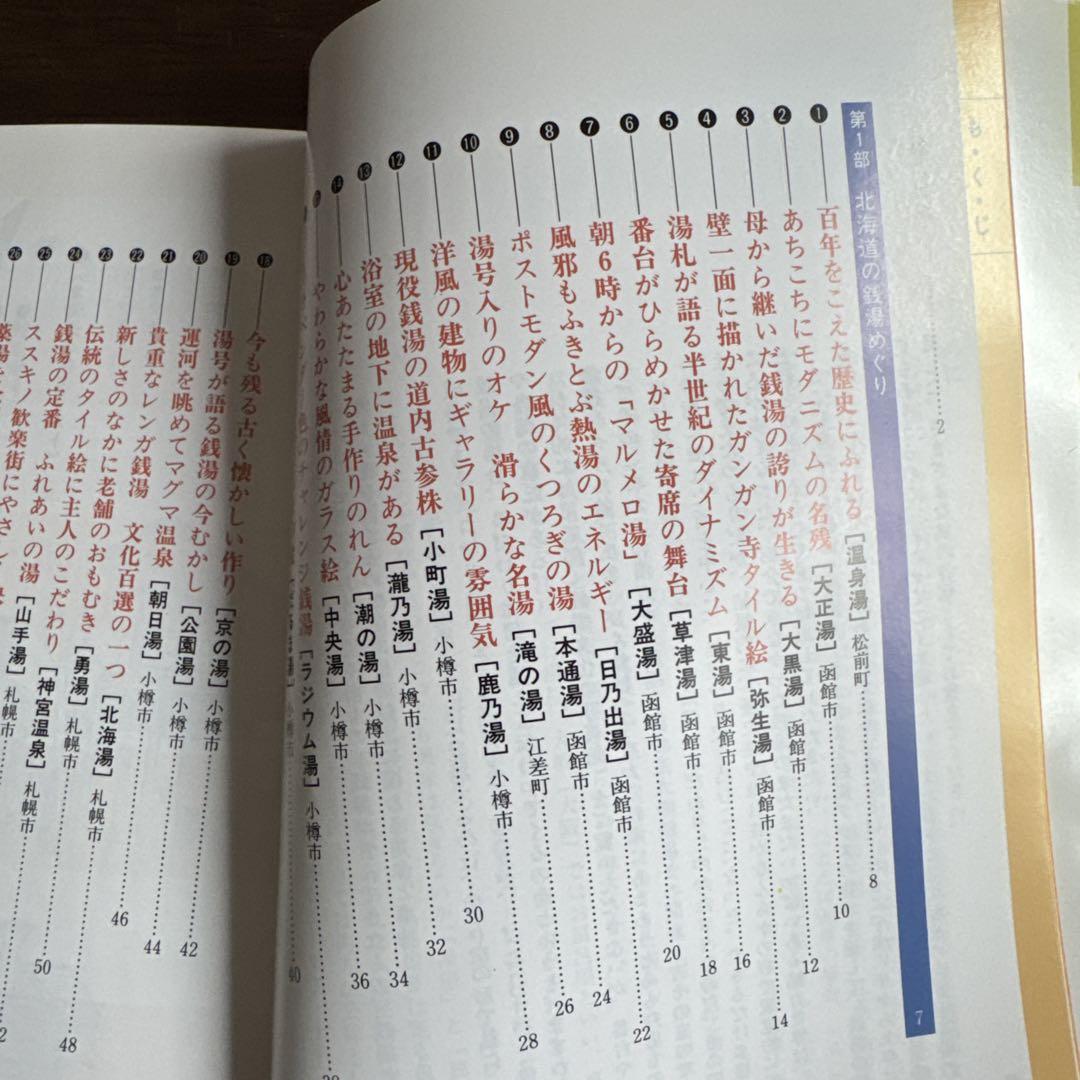 も・く・じ
2
第1部 北海道の銭湯めぐり
❶百年をこえた歴史にふれる[温身湯]松前町 8
❷あちこちにモダニズムの名残[大正湯]函館市 10
❸母から継いだ銭湯の誇りが生きる[大黒湯]函館市 12
❹壁一面に描かれたガンガン寺タイル絵[弥生湯]函館市 14
❺湯札が語る半世紀のダイナミズム[東湯]函館市 16
❻番台がひらめかせた寄席の舞台[草津湯]函館市 18
❼朝6時からの「マルメロ湯」[大盛湯]函館市 20
❽風邪もふきとぶ熱湯のエネルギー[日乃出湯]函館市 22
❾ポストモダン風のくつろぎの湯[本通湯]函館市 24
❿湯号入りのオケ 滑らかな名湯[滝の湯]江差町 26
⓫洋風の建物にギャラリーの雰囲気[鹿乃湯]小樽市 28
⓬現役銭湯の道内古参株[小町湯]小樽市 30
⓭浴室の地下に温泉がある[瀧乃湯]小樽市 32
⓮心あたたまる手作りのれん[潮の湯]小樽市 34
やわらかな風情のガラス絵[中央湯]小樽市 36
レンジ銭湯[ラジウム湯]小樽市
小樽市 40
7
⓲今も残る古く懐かしい作り[京の湯]小樽市 42
⓳湯号が語る銭湯の今むかし[公園湯]小樽市 44
⓴運河を眺めてマグマ温泉[朝日湯]小樽市 46
㉑貴重なレンガ銭湯 文化百選の一つ[北海湯]札幌市 48
㉒新しさのなかに老舗のおもむき[勇湯]札幌市 50
㉓伝統のタイル絵に主人のこだわり[神宮温泉]札幌市
㉔銭湯の定番 ふれあいの湯[山手湯]札幌市
㉕ススキノ歓楽街にやさし
㉖薬湯